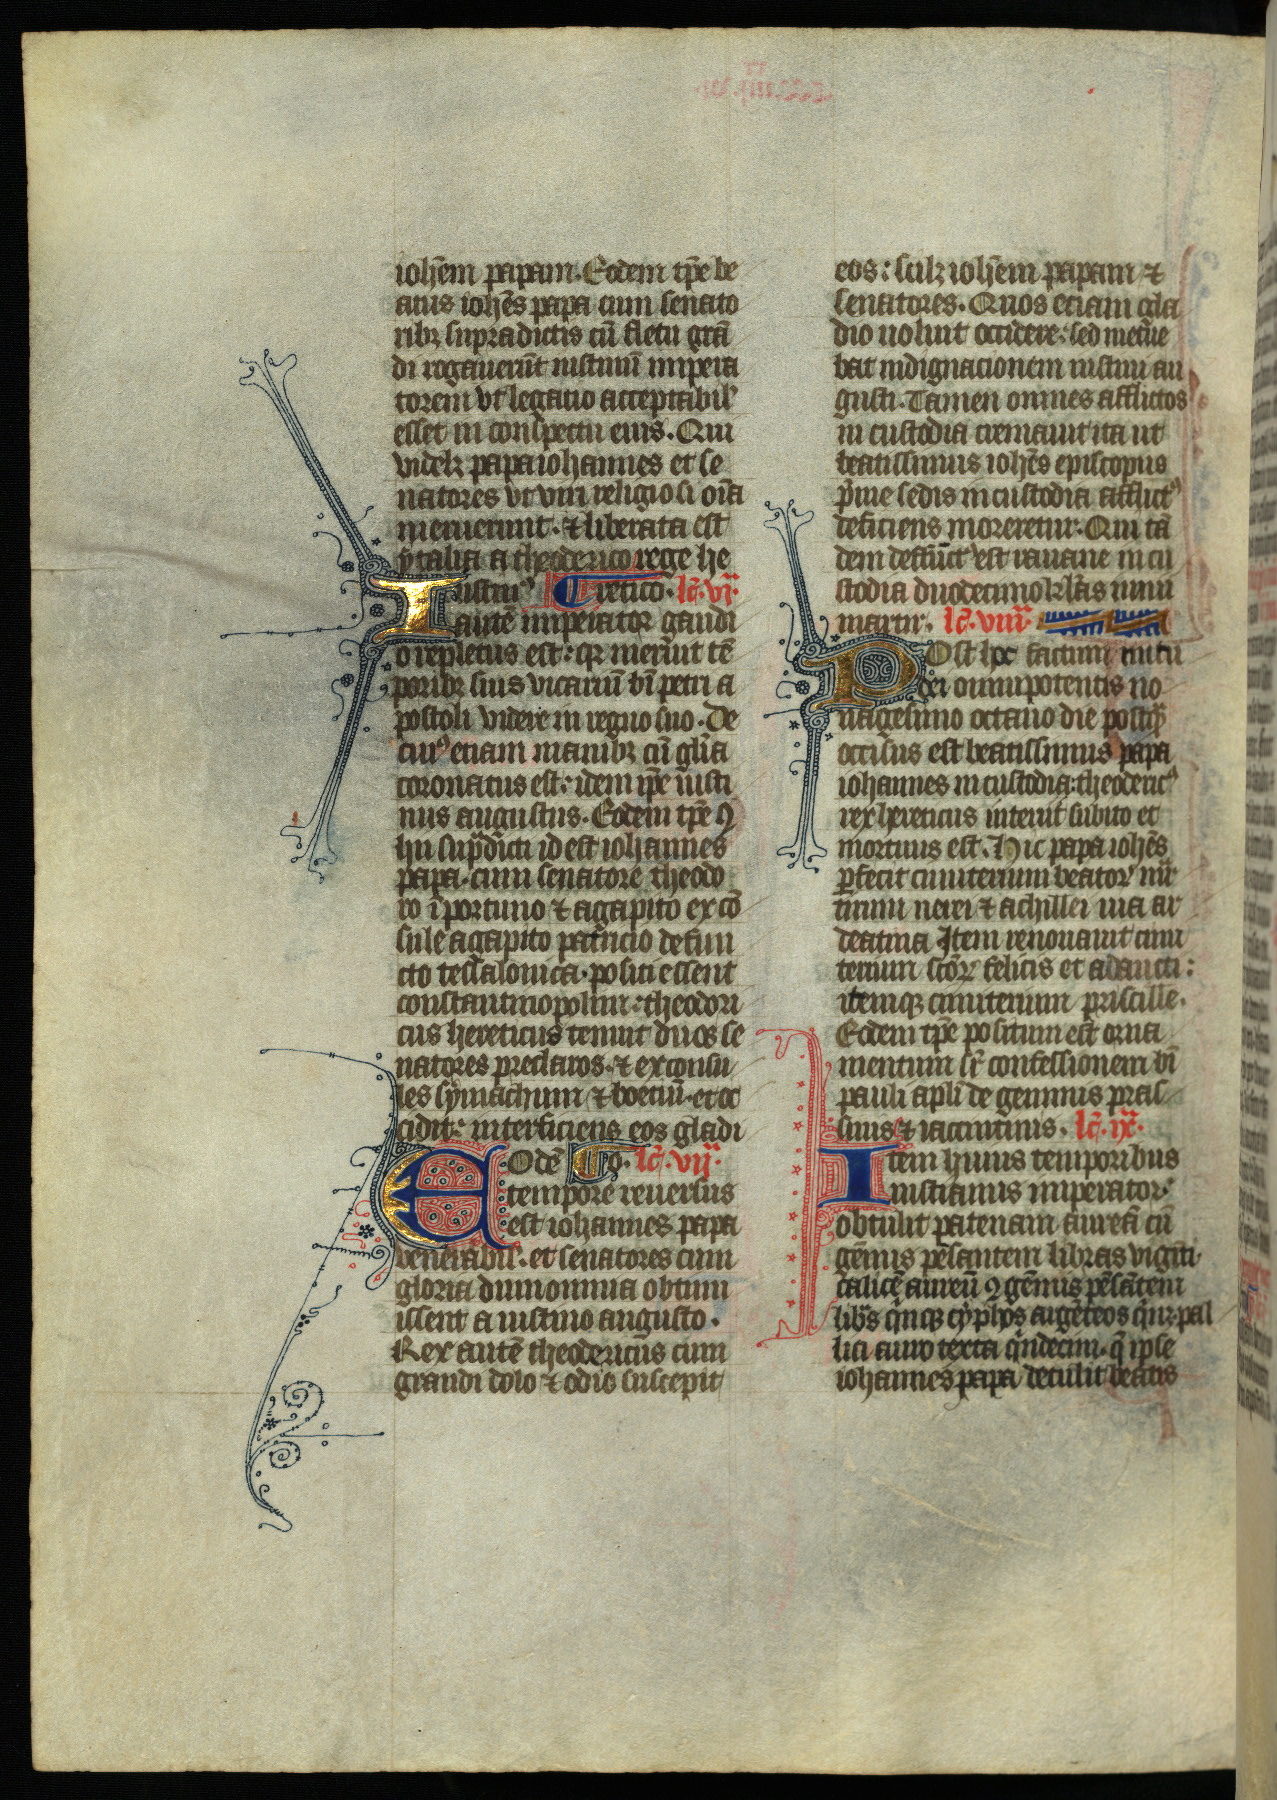 ioh̄em papam. Eodem tp̄e be
atus ioh̄es papa cum senato
ribꝫ supradictis cū fletu grā
di rogauerūt iustinū impera
torem vt legatio acceptabil'
esset in conspectu eius. Qui
videlꝫ papa iohannes et se
natores vt viri religiosi oīa
meruerunt. ⁊ liberata est
ẏtalia a theoderico rege he
Iustinꝰ retico. lc̄. vi.
autē imperator gaudi
o repletus est: qꝛ meruit tē
poribꝫ suis vicariū bī petri a
postoli videre in regno suo. De
cuiꝰ etiam manibꝫ cū gl̄ia
coronatus est: idem ip̄e iusti
nus augustus. Eodem tp̄e ꝯ
hii sup̄dicti id est iohannes
papa. cum senatore theodo
ro īportuno ⁊ agapito ex cō
sule agapito patricio defun
cto tessalonica. positi essent
constantinopolim: theodori
cus hereticus tenuit duos se
natores preclaros. ⁊ ex consu
les sẏmachum ⁊ boetiū. et oc
cidit: interficiens eos gladi
Eodē o. lc̄. vij.
tempore reuersus
est iohannes papa
venerabil'. et senatores cum
gloria dum omnia obtinu
issent a iustino augusto.
Rex autē theodericus cum
grandi dolo ⁊ odio suscepit
eos: scilꝫ ioh̄em papam ⁊
senatores. Quos etiam gla
dio uoluit occidere: sed metue
bat indignacionem iustini au
gusti. Tamen omnes afflictos
in custodia cremauit ita ut
beatissimus ioh̄es episcopus
p̄me sedis in custodia afflictꝰ
deficiens moreretur. Qui tā
dem defūctꝰ est rauane in cu
stodia duodecimo kl̄as iunii
martir. lc̄. viii.
Post hoc factum nutu
dei omnipotentis no
nagesimo octauo die postq̄
occisus est beatissimus papa
iohannes in custodia: theodericꝰ
rex hereticus interiit subito et
mortuus est. Hic papa ioh̄es
ꝑfecit cimiterium beatorꝰ mr̄
tirum nerei ⁊ achillei uia ar
deatina Item renouauit cimi
terium sc̄orꝝ felicis et adaucti:
itemqꝫ cimiterium priscille.
Eodem tp̄e positum est orna
mentum sr̄ confessionem bī
pauli apl̄i de gemmis pras
sinis ⁊ iacintinis. lc̄. ix.
Item huius temporibus
iustianus imperator.
obtulit patenam aureā cū
gēmis pēsantem libras viginti.
calicē aureū ꝯ gēmis pēsātem
lib's q̄nqꝫ cẏphos argēteos q̄nqꝫ pal
lia auro texta q̄ndecim. q̄ ipse
iohannes papa detulit beatis